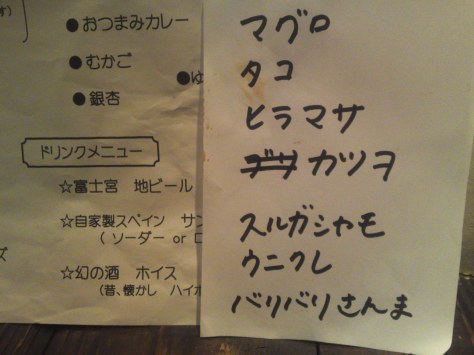 す)
●おつまみカレー
●むかご
●ゆ
●銀杏
ドリンクメニュー
☆富士宮 地ビール
☆自家製スペイン サン
( ソーダー or ロ
ズ
☆幻の酒 ホイス
(昔、懐かし ハイボ
マグロ
タコ
ヒラマサ
カツヲ
スルガシャモ
ウニクレ
バリバリさんま